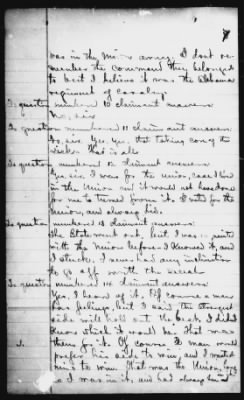 was in the Union army. I dont re-
member the command they belonged
to but I believe it was the Alabama
regiment of cavalry.
To question numbered 10 claimant answers:
No, sir.
To question numbered 11 claimant answers:
No, sir. Yes, yes, that taking
that is all.
To question numbered 12 claimant answers:
Yes, sir, I was for the Union, cause I lived
in the Union and it would not have done
for me to turned from it. I voted for the
Union, and always did.
To question numbered 13 claimant answers:
The State went out, but I was
with the Union before I knowed it, and
I stuck. I never had any inclination
to go off with the
To question numbered 14 claimant answers:
Yes, I heard of it. Of course a man
has feelings, but I says the strongest
side will hold out the best. I didnt
know which it would be. That was
them for it. Of course a man would
prefer his side to win, and I wanted
mine to win. That was the Union,
so I was in it, and had always